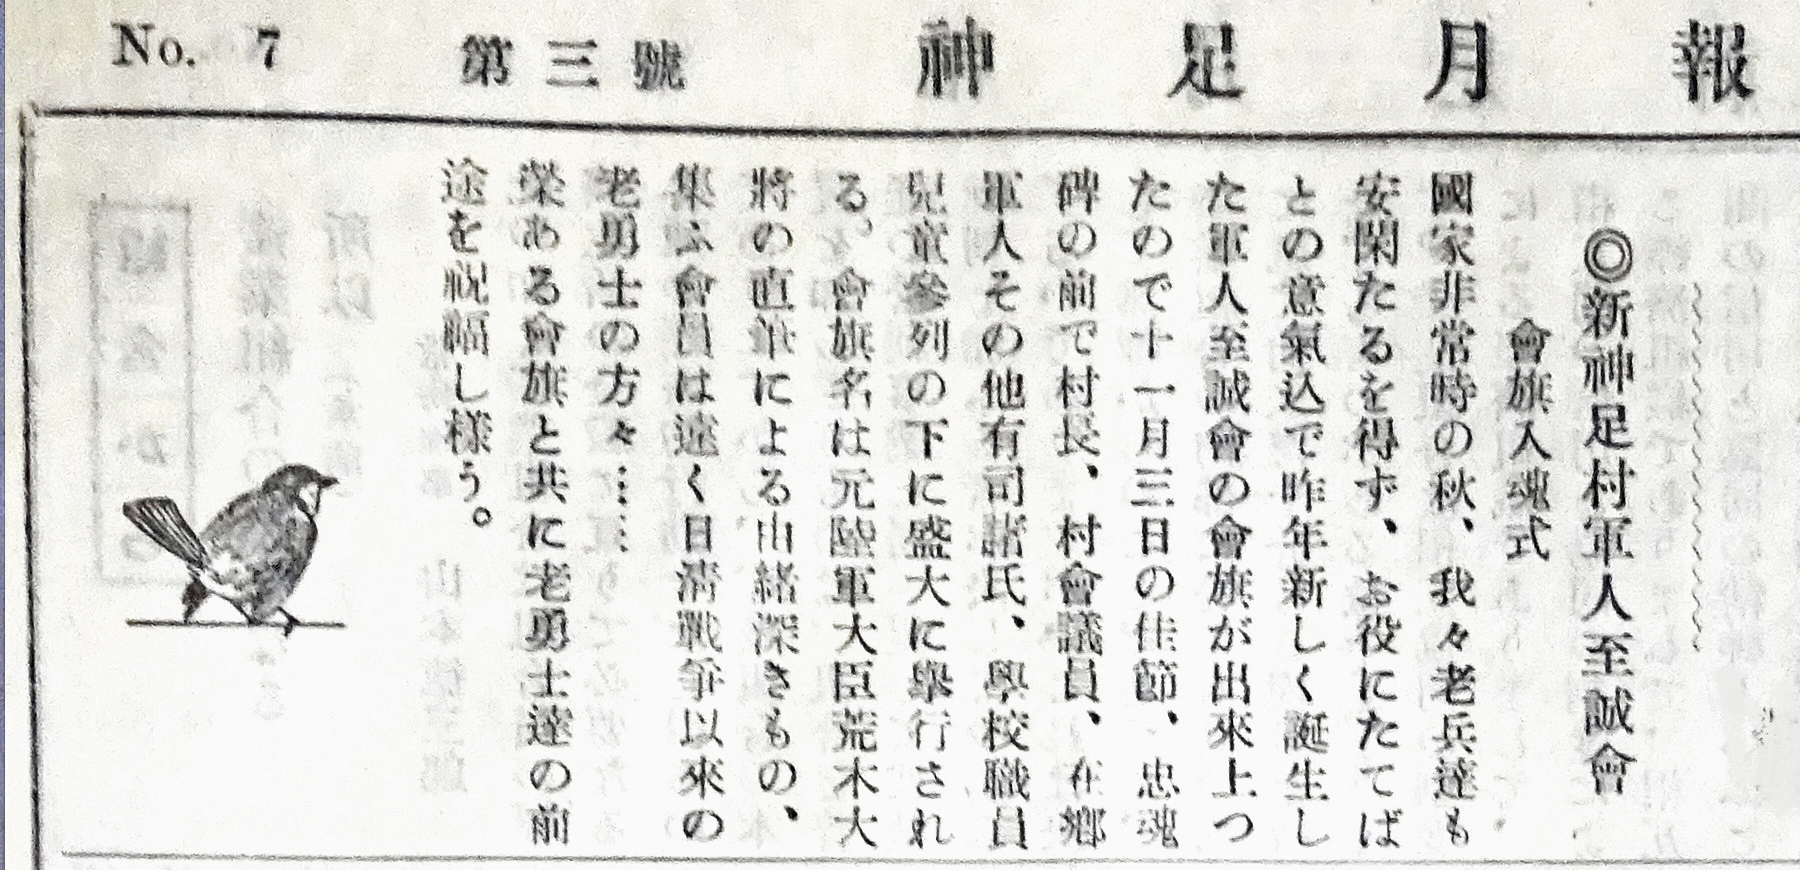 No. 7 第三號 神足月報
◎新神足村軍人至誠會
會旗入魂式
國家非常時の秋、我々老兵達も
安閑たるを得ず、お役にたてば
との意氣込で昨年新しく誕生し
た軍人至誠會の會旗が出來上つ
たので十一月三日の佳節、忠魂
碑の前で村長、村會議員、在鄕
軍人その他有司諸氏、學校職員
兒童參列の下に盛大に擧行され
る。會旗名は元陸軍大臣荒木大
將の直筆による由緒深きもの、
集ふ會員は遠く日淸戰爭以來の
老勇士の方々……
榮ある會旗と共に老勇士達の前
途を祝福し様う。